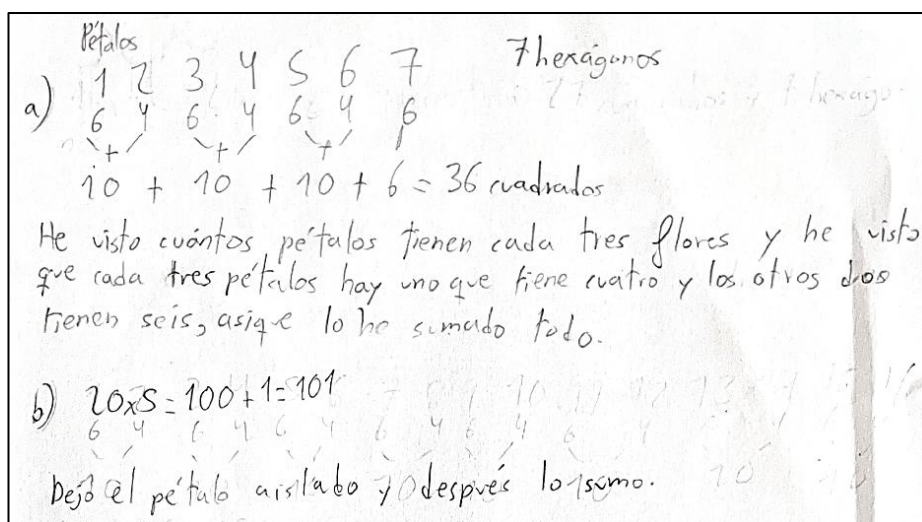 Pétalos
1 2 3 4 5 6 7 7 hexágonos
a) 6 4 6 4 6 4 6
+ + +
10 + 10 + 10 + 6 = 36 cuadrados
He visto cuántos pétalos tienen cada tres flores y he visto
que cada tres pétalos hay uno que tiene cuatro y los otros dos
tienen seis, asique lo he sumado todo.
b) 20x5=100+1=101
6 4 6 4 6 4 6 4 6 4 6 4
Dejo el pétalo aislado y después lo sumo.